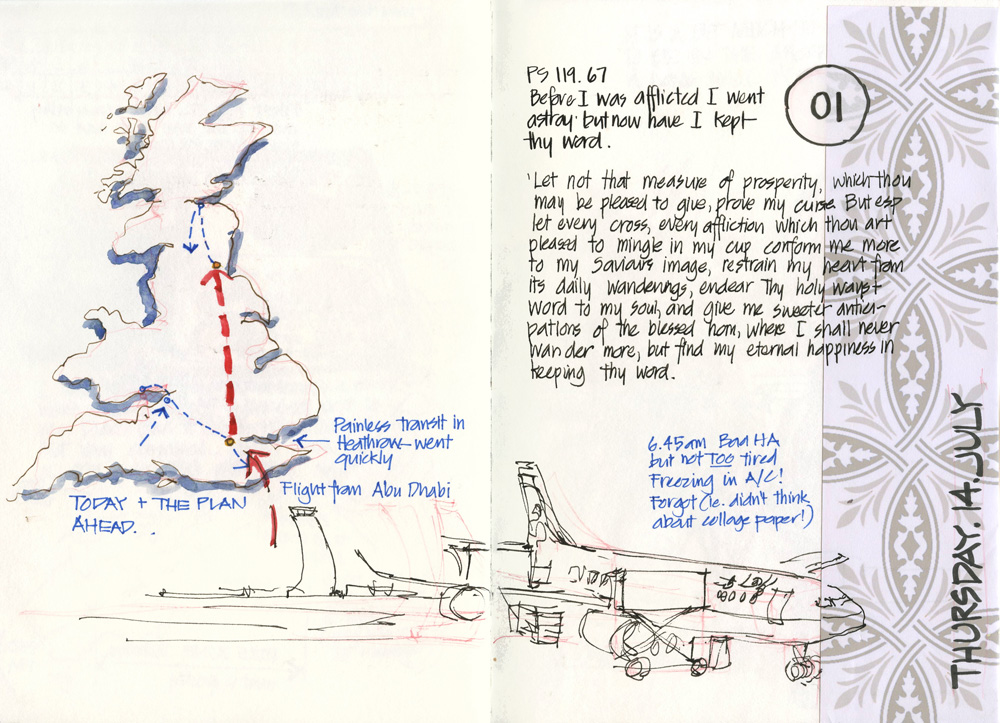 Painless transit in
Heathrow - went
quickly
Flight from Abu Dhabi
TODAY + THE PLAN
AHEAD...
PS 119.67
Before I was afflicted I went
astray: but now have I kept
thy word.
01
'Let not that measure of prosperity, which thou
may be pleased to give, prove my curse. But esp
let every cross, every affliction which thou art
pleased to mingle in my cup conform me more
to my Saviour's image, restrain my heart from
its daily wanderings, endear Thy holy ways +
word to my soul, and give me sweeter antici-
pations of the blessed hom, where I shall never
wander more, but find my eternal happiness in
keeping thy word.
6.45am Bad HA
but not TOO tired
Freezing in A/C!
Forgot (ie. didn't think
about collage paper!)
THURSDAY. 14. JULY